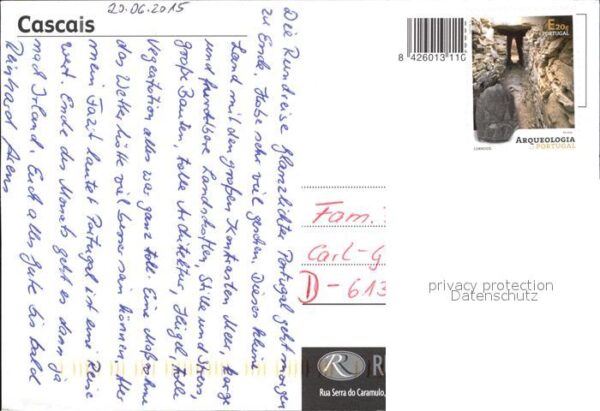 20.06.2015
Cascais
Die Rundreise glanzlichter Portugal geht morgen
zu Ende. Habe sehr viel gesehen. Dieses kleine
Land mit den großen Kontrasten Meer, karge
und fruchtbare Landschaften, Stille und Stress,
große Bauten, tolle Architektur, Hügel, tolle
Vegetation alles war ganz toll. Eine
das Wetter hätte viel besser sein können. Aber
mein Fazit lautet Portugal ist eine Reise
wert. Ende des Monats geht es dann ja
nach Irland. Euch alles Gute bis bald
Reinhard
8 426013 110
E20g
PORTUGAL
ARQUEOLOGIA
PORTUGAL
CORREIOS
Fam.
Carl-G
D-613
privacy protection
Datenschutz
R
Rua Serra do Caramulo,